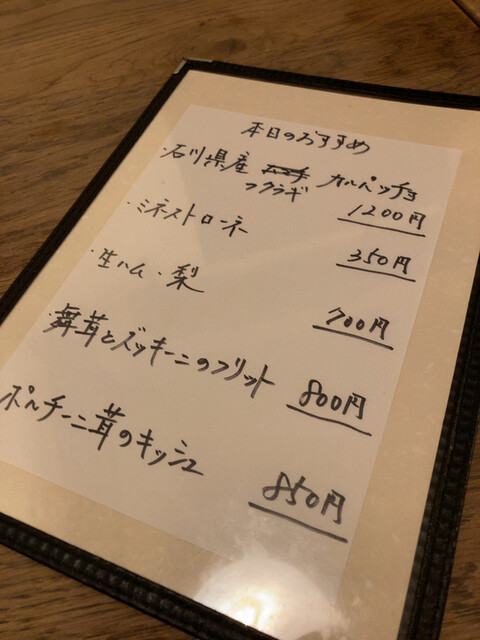 本日のおすすめ
・石川県産 カルパッチョ
フクラギ 1200円
・ミネストローネ 350円
・生ハム・梨 700円
・舞茸とズッキーニのフリット 800円
ポルチーニ茸のキッシュ 850円